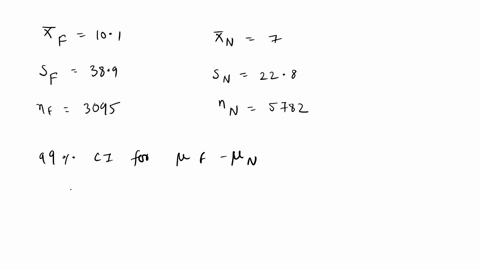 x̄F = 10.1
x̄N = 7
SF = 38.9
SN = 22.8
nF = 3095
nN = 5782
99% CI for μF - μN